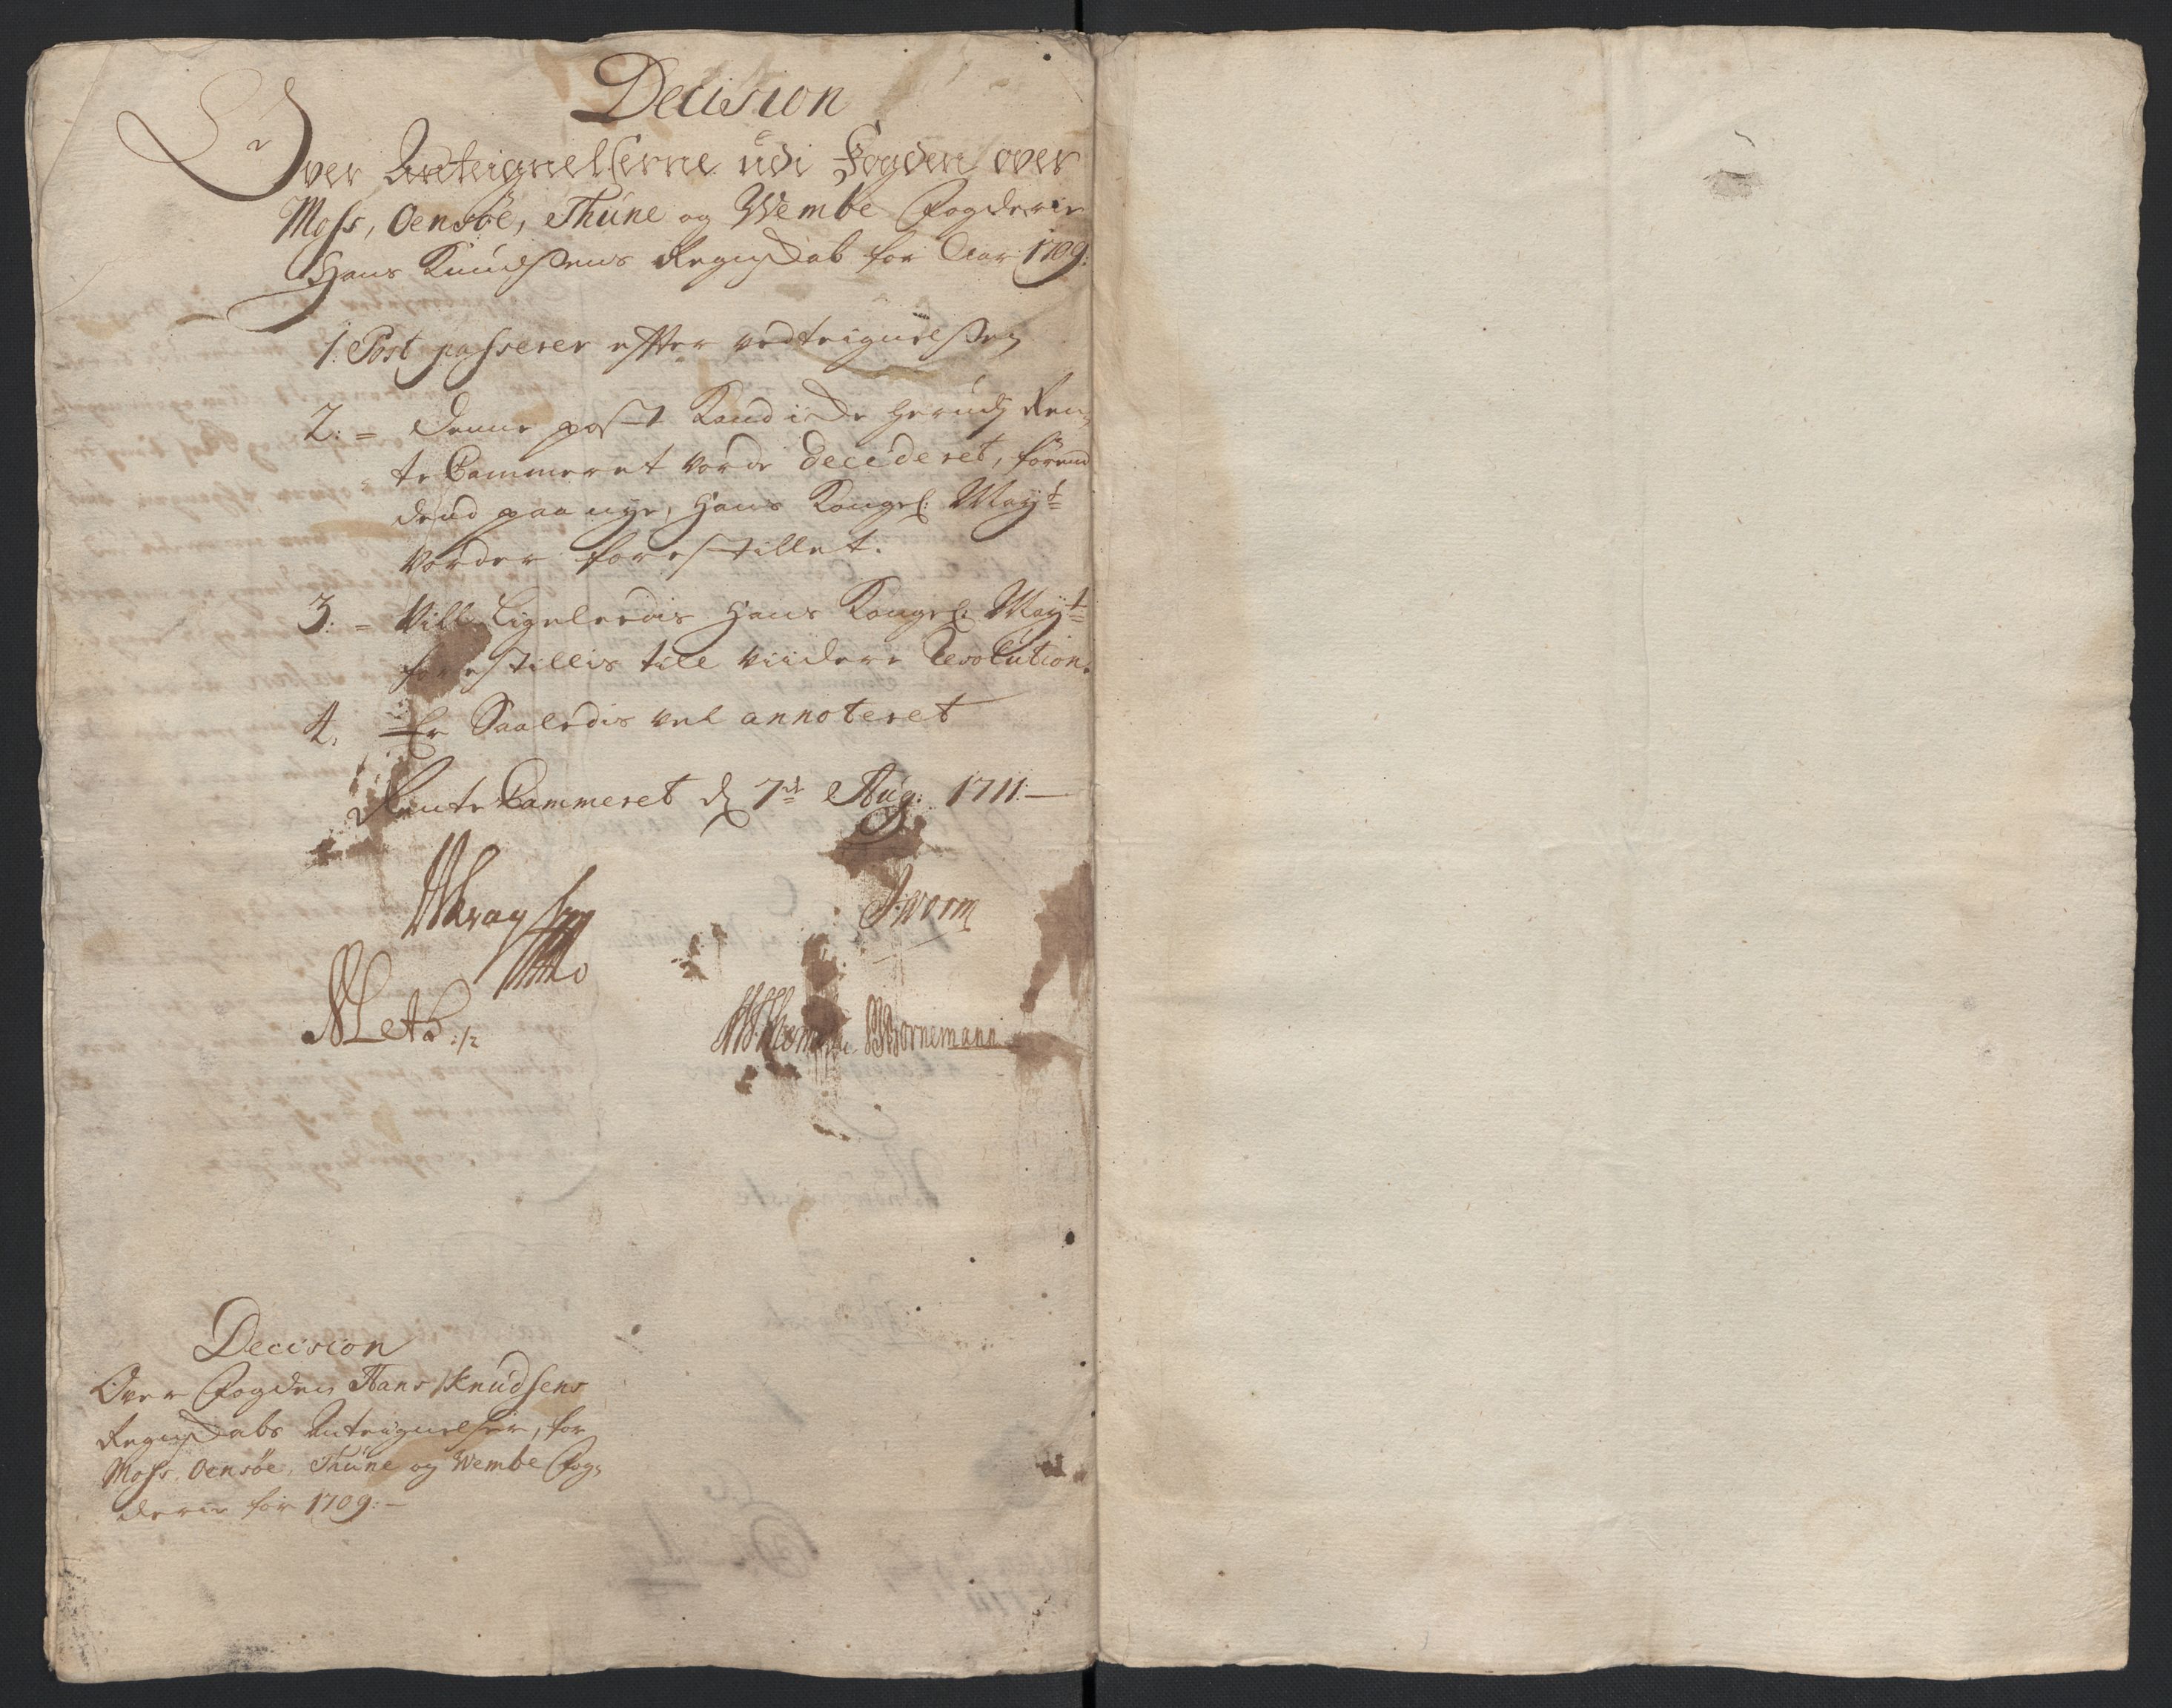 Decision
Over Anteignelserne udi Fogden over
Moss, Oensøe, Thune og Wembe Fogderie
Hans Knudsens Regnskab for Aar 1709:
1. Post passerer efter vedteignelsen
2: = Denne post Kand icke herudj Ren,
te Cammeret vorde decideret, førend
dend paa nye, Hans Kongel: May:t
vorder forestillet.
3: = Will Ligeledis Hans Kongel: May:t
forestillis till viidere Resolution.
4, Er Saaledis vel annoteret
Rente Cammeret d 7de Aug: 1711:—
J: Worm
Meta:
Thomme Bornemann
Decision
Over Fogden Hans Knudsens
Regnskabs Anteignelser, for
Moss, Oensøe, Thune og Wembe Fog,
derie for 1709:—